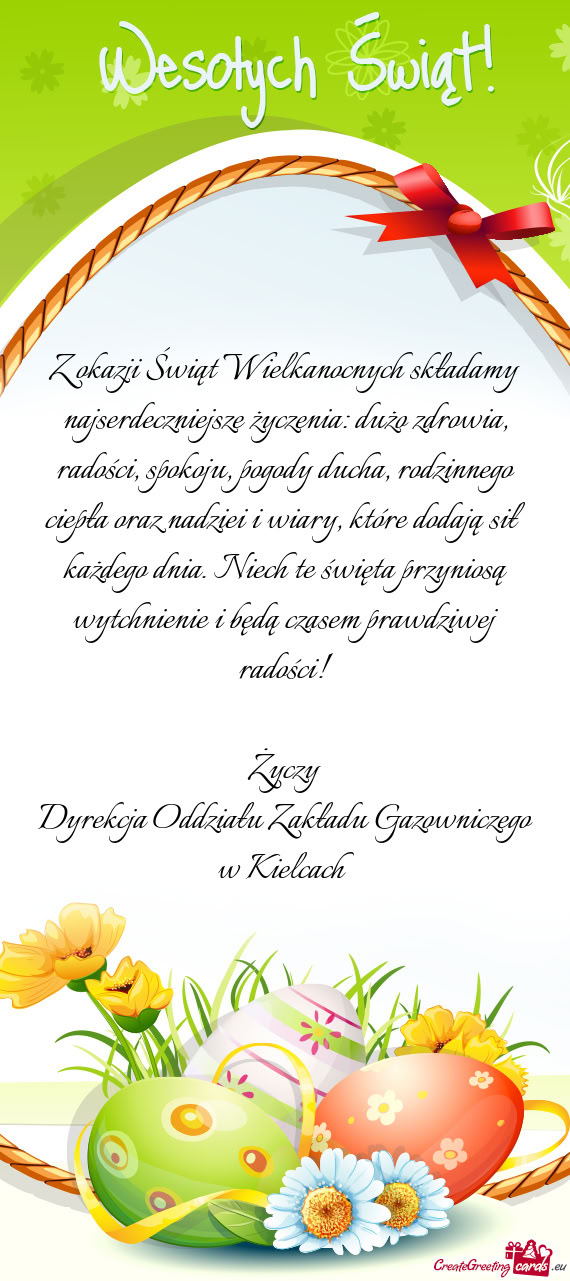 Wesołych Świąt!
Z okazji Świąt Wielkanocnych składamy
najserdeczniejsze życzenia: dużo zdrowia,
radości, spokoju, pogody ducha, rodzinnego
ciepła oraz nadziei i wiary, które dodają sił
każdego dnia. Niech te święta przyniosą
wytchnienie i będą czasem prawdziwej
radości!
Życzy
Dyrekcja Oddziału Zakładu Gazowniczego
w Kielcach
CreateGreetingcards.eu